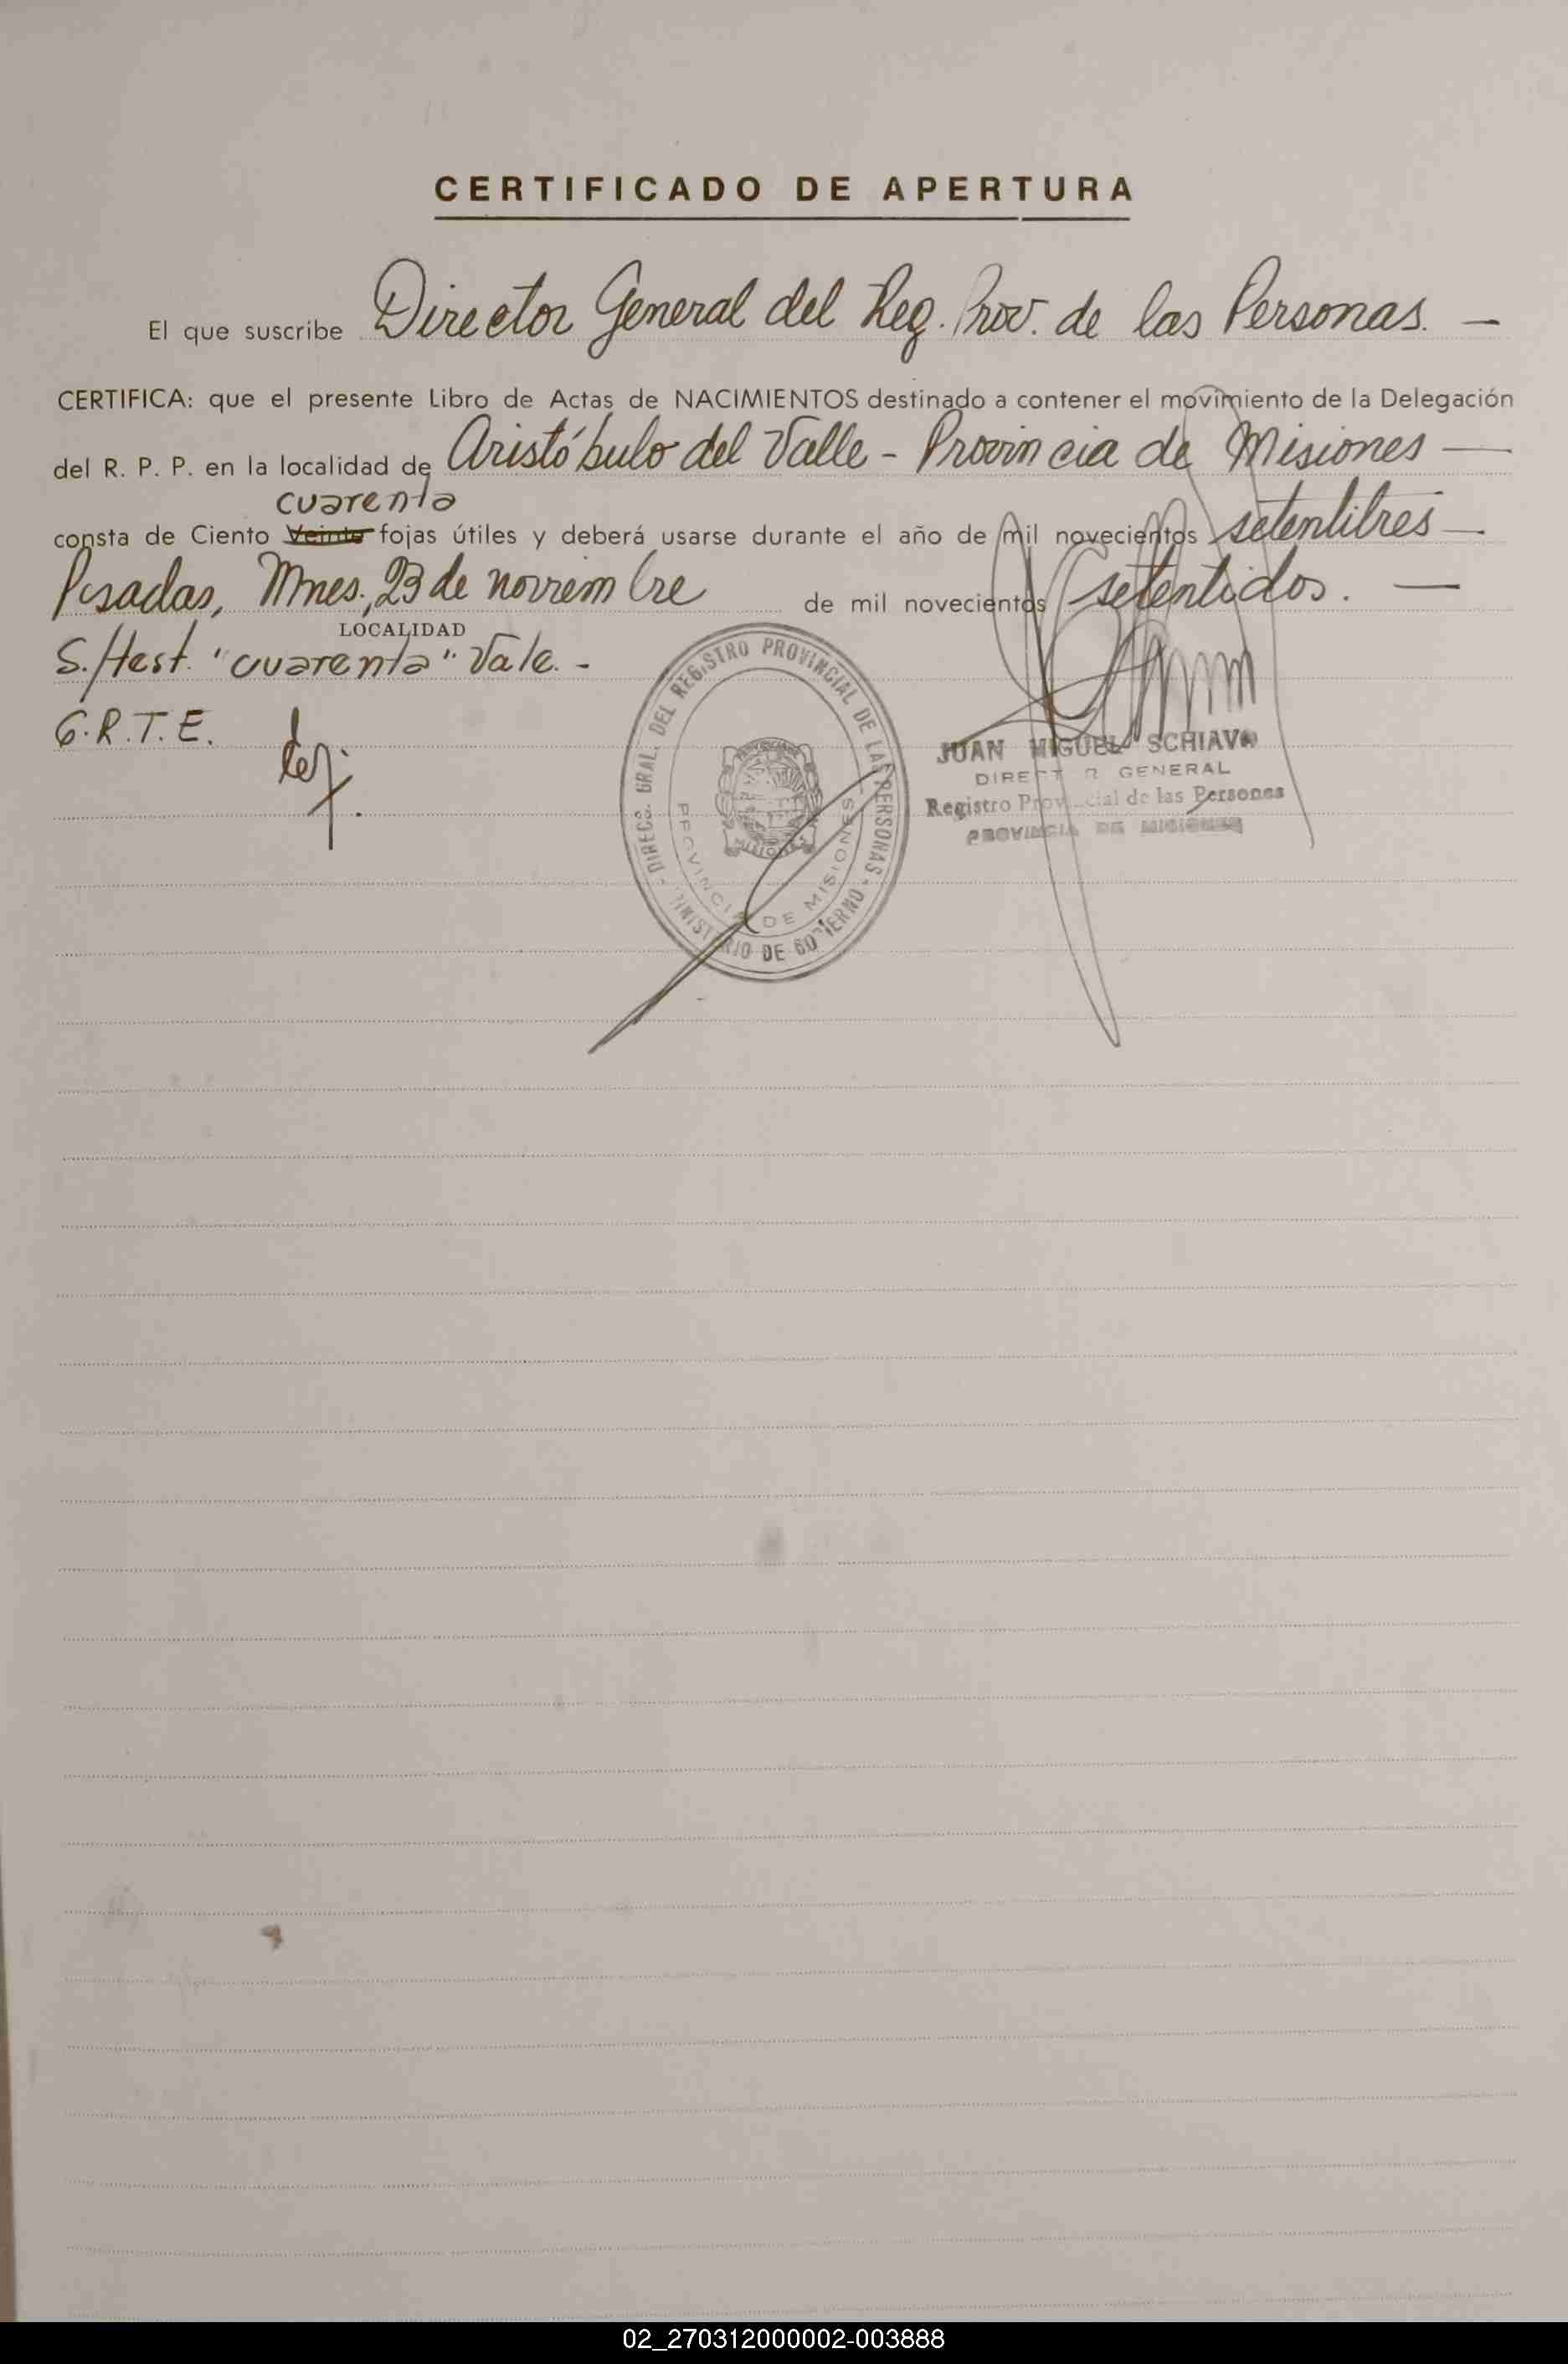 CERTIFICADO DE APERTURA
El que suscribe Director General del Reg. Prov. de las Personas. —
CERTIFICA: que el presente Libro de Actas de NACIMIENTOS destinado a contener el movimiento de la Delegación
del R. P. P. en la localidad de Aristóbulo del Valle - Provincia de Misiones —
cuarenta
consta de Ciento Veinte fojas útiles y deberá usarse durante el año de mil novecientos setentitres —
Posadas, Mnes., 23 de noviembre de mil novecientos setentidos. —
LOCALIDAD
S./Test. "cuarenta" Vale. -
G.R.T.E.
DIRECC. GRAL. DEL REGISTRO PROVINCIAL DE LAS PERSONAS - MINISTERIO DE GOBIERNO -
PROVINCIA DE MISIONES
JUAN MIGUEL SCHIAVO
DIRECTOR GENERAL
Registro Provincial de las Personas
PROVINCIA DE MISIONES
02_270312000002-003888